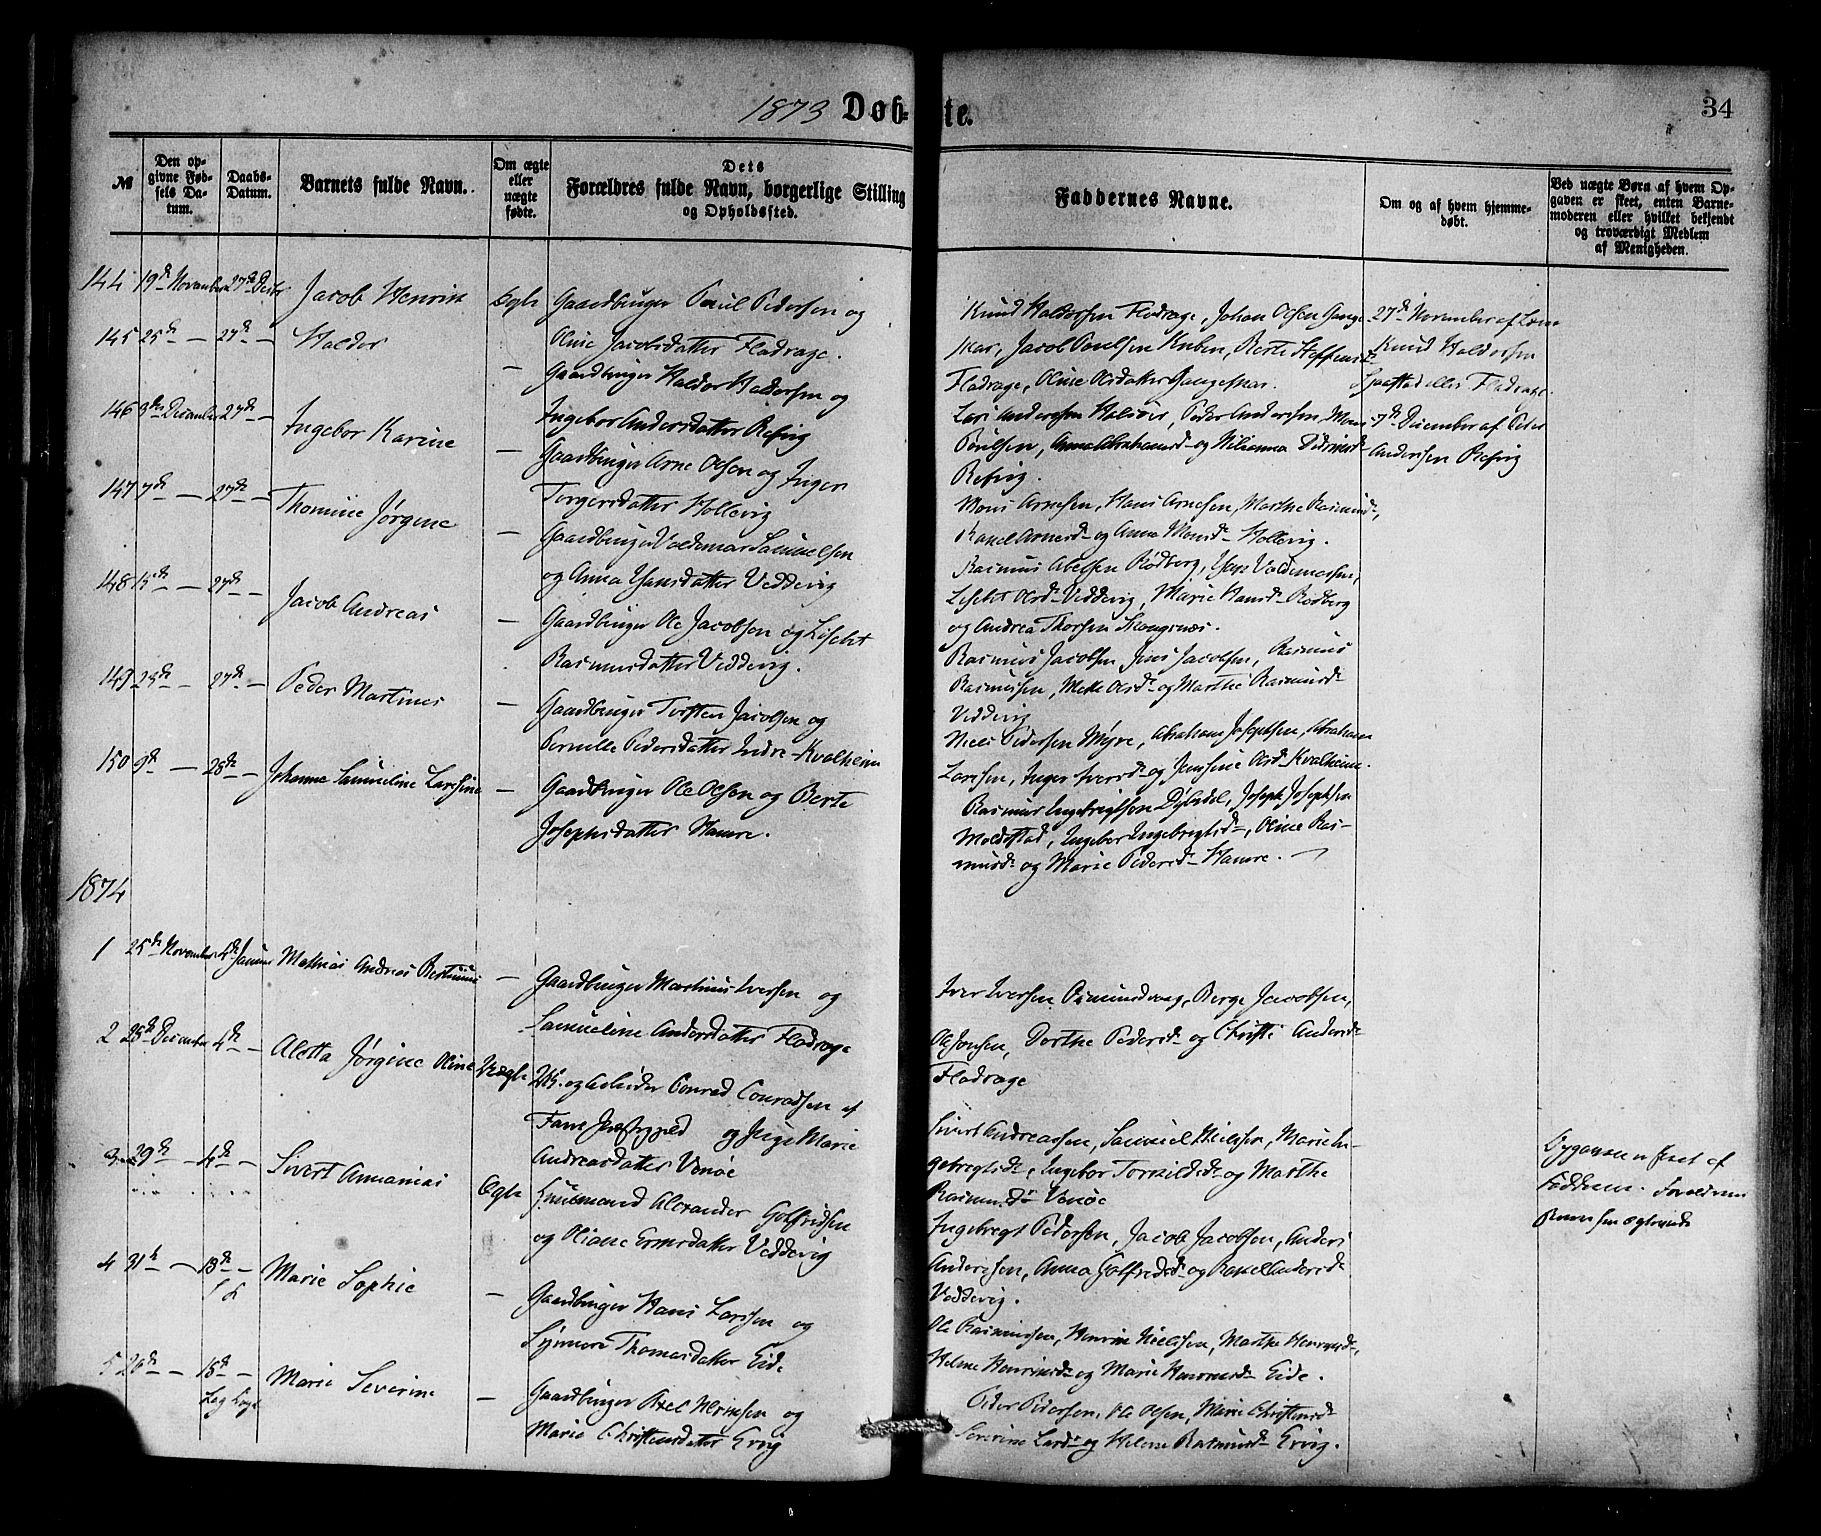 1873 Døb=te.
34
№
Den opgivne Fødsels Datum.
Daabs-Datum.
Barnets fulde Navn.
Om ægte eller uægte fødte.
Dets Forældres fulde Navn, borgerlige Stilling og Opholdssted.
Faddernes Navne.
Om og af hvem hjemmedøbt.
Ved uægte Børn af hvem Opgaven er skeet, enten Barnemoderen eller hvilket bekjendt og troværdigt Medlem af Menigheden.
144 19de November 27de Decbr Jacob Henrik Ægte Gaardbruger Poul Pedersen og
Oline Jacobsdatter Flodrage.
Knud Haldorsen Flodrage, Johan Olsen Gange
skar, Jacob Poulsen Kuben, Berte Steffensd
Flodrage, Oline Olsdatter Gangeskar.
27de November af
Knud Haldorsen
Flodrage
145 25de — 27de — Haldor — Gaardbruger Haldor Haldorsen og
Ingebor Andersdatter Refvig
Lars Andersen Halsør, Peder Andersen, Mons
Poulsen, Anna Abrahamsd og Pedersd
Refvig.
7de December af Peder
Andersen Refvig
146 December 27de — Ingebor Karine — Gaardbruger Arne Olsen og Inger
Torgersdatter Hollevig
Mons Arnesen, Hans Arnesen, Marthe Rasmusd,
Rakel Arnesd og Anna Monsd Hollevig.
147 7de — 27de — Thomine Jørgine — Gaardbruger Valdemar Samuelsen
og Anna Hansdatter Veddevig
Rasmus Abelsen Rødberg, Valdemarsen,
Lisebet Olsd Veddevig, Marie Hansd Rødberg
og Andrea Thorsen Skongsnæs.
148 15de — 27de — Jacob Andreas — Gaardbruger Ole Jacobsen og Lisebet
Rasmusdatter Veddevig.
Rasmus Jacobsen, Jens Jacobsen, Rasmus
Rasmussen, Mette Olsd og Marthe Rasmusd
Veddevig
149 — 27de — Peder Martinus — Gaardbruger Torsten Jacobsen og
Pernille Pedersdatter Indre-Kvalheim
Niels Pedersen Myre, Abraham Josephsen, Abraham
Larssen, Inger Iversd og Jensine Olsd Kvalheim.
150 9de — 28de — Johanne Samueline Larssine — Gaardbruger Ole Olsen og Berte
Josephsdatter Hamre.
Rasmus Ingebrigtsen Dybedal, Joseph Josephsen
Moldestad, Ingebor Ingebrigtsd, Oline Ras-
musd og Marie Pedersd Hamre. —
1874
1 25de November 4de Januar Mathias Andreas — Gaardbruger Martinus Iversen og
Samueline Andersdatter Flodrage
Iver Iversen Osmundsvaag, Berge Jacobsen,
Ole Jonsen, Dorthe Pedersd og Christi Andersd
Flodrage
2 December 4de — Aletta Jørgine Oline Uægte Uk. og Arbeider Conrad Conradsen af
Fane Præstegjeld og Pige Marie
Andreasdatter Venøe
Sivert Andreassen, Samuel Nielssen, Marie In-
gebregtsd, Ingebor Torkildsd og Marthe
Rasmusd Venøe
Opgaven er skeet af
Fadderne. Forældrene
3 29de — 4de — Sivert Annanias Ægte Huusmand Alexander Golfridsen
og Oliane Ermsdatter Veddevig
Ingebregt Pedersen, Jacob Jacobsen, Anders
Andersen, Anna Golfridsd og Rakel Andersd
Veddevig.
4 31te — 18de — Marie Sophie — Gaardbruger Hans Larssen og
Synnøve Thomasdatter Eide
Ole Rasmussen, Henrik Nielssen, Marthe Henriksd,
Helene Henriksd og Marie Henriksd Eide.
5 26de — 18de — Marie Severine — Gaardbruger Axel og
Marie Christensdatter Ervig
Peder Pedersen, Ole Olsen, Marie Christensd
Severine Larsd og Helene Rasmusd Ervig.